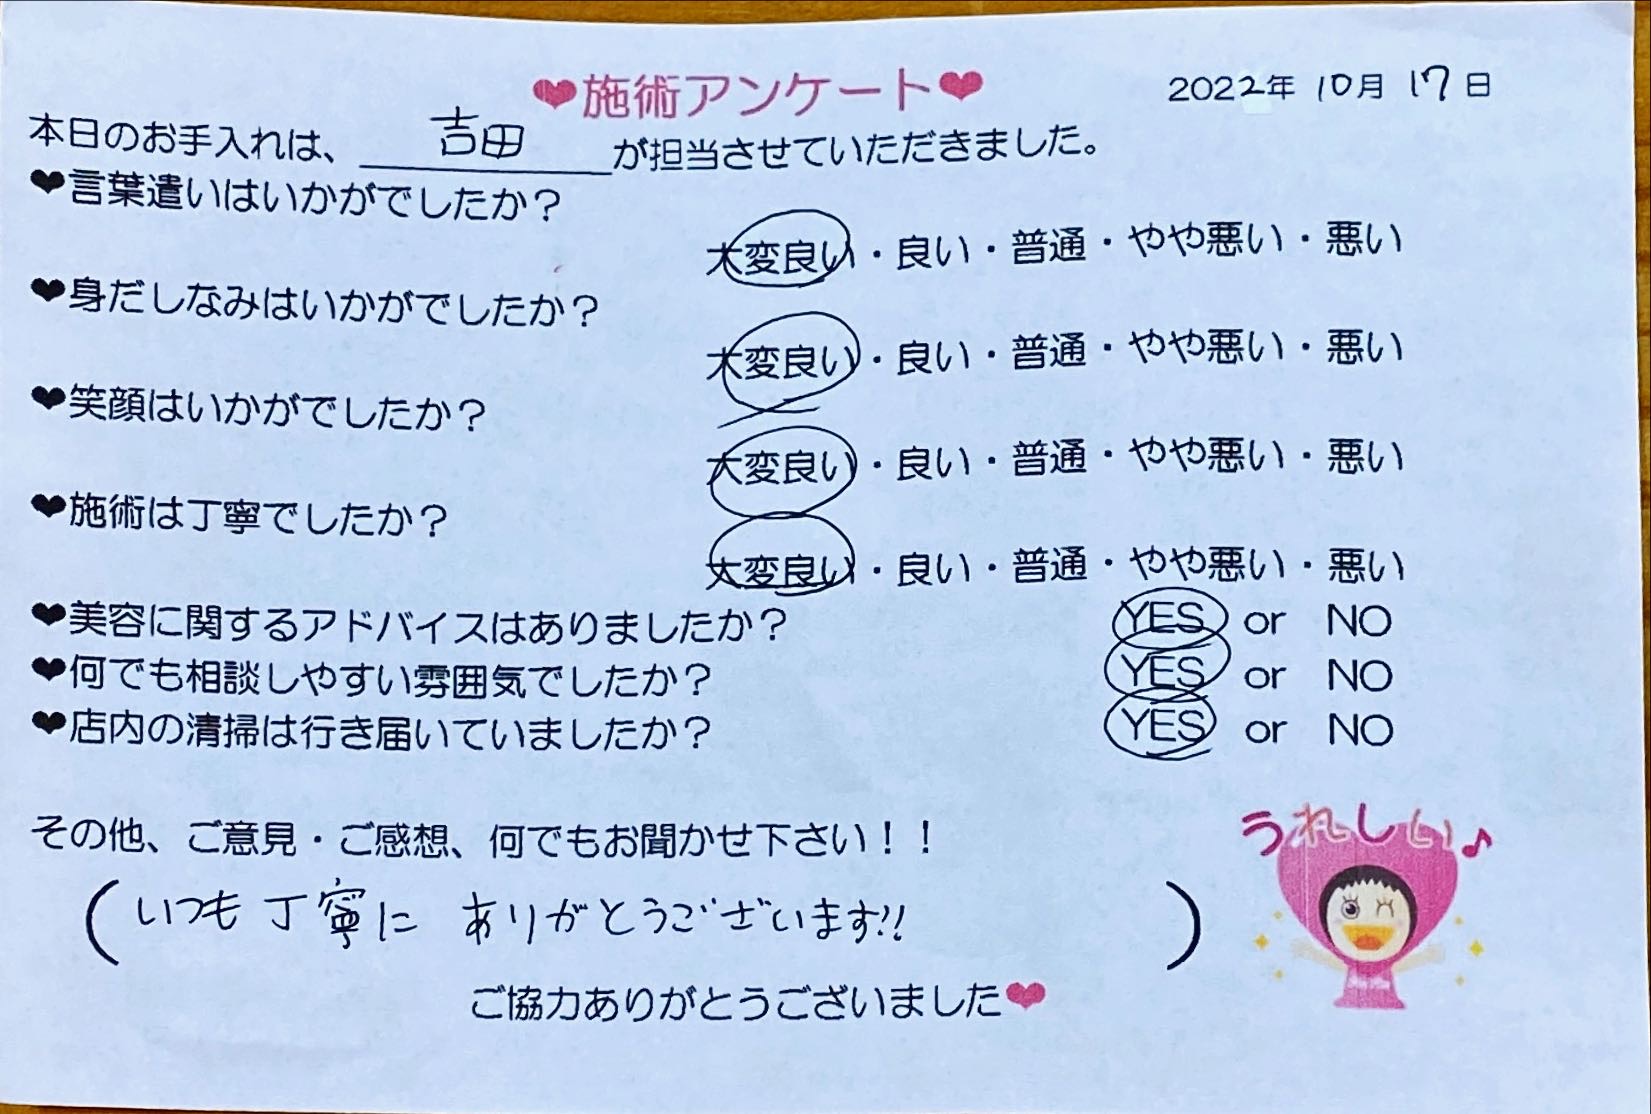 ❤施術アンケート❤
2022年 10月 17日
本日のお手入れは、 吉田 が担当させていただきました。
❤言葉遣いはいかがでしたか？
大変良い・良い・普通・やや悪い・悪い
❤身だしなみはいかがでしたか？
大変良い・良い・普通・やや悪い・悪い
❤笑顔はいかがでしたか？
大変良い・良い・普通・やや悪い・悪い
❤施術は丁寧でしたか？
大変良い・良い・普通・やや悪い・悪い
❤美容に関するアドバイスはありましたか？ YES or NO
❤何でも相談しやすい雰囲気でしたか？ YES or NO
❤店内の清掃は行き届いていましたか？ YES or NO
その他、ご意見・ご感想、何でもお聞かせ下さい！！
うれしい♪
(いつも丁寧に ありがとうございます!!)
ご協力ありがとうございました❤